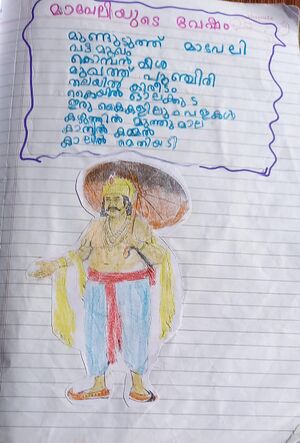 മാവേലിയുടെ വേഷം
മുണ്ടുടുത്ത് മാവേലി
പട്ടുടുത്തും
കൊമ്പൻ മീശ
മുഖത്ത് പുഞ്ചിരി
തലയിൽ കിരീടം
കൈയിൽ ഓലക്കുട
ഇരു കൈകളിലും വളകൾ
കഴുത്തിൽ മുത്തുമാല
കാതിൽ കമ്മൽ
കാലിൽ മെതിയടി